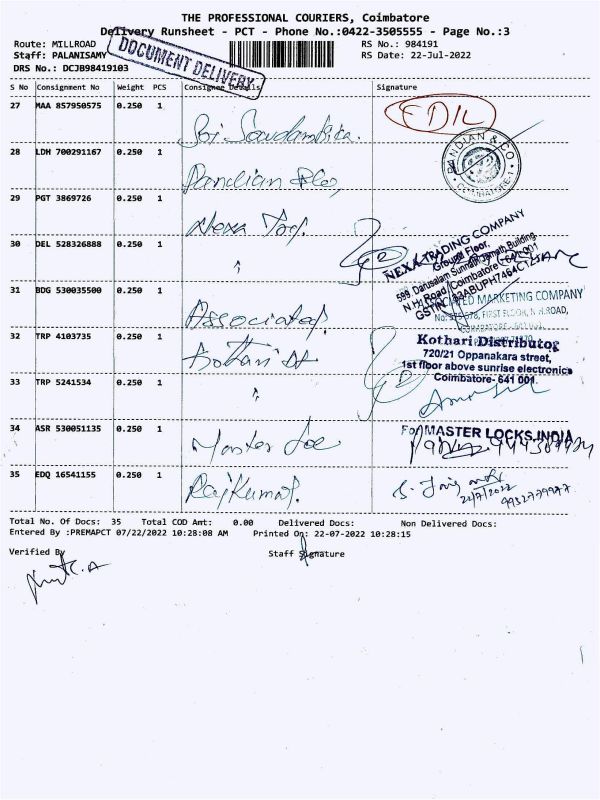 THE PROFESSIONAL COURIERS, Coimbatore
Delivery Runsheet - PCT - Phone No.:0422-3505555 - Page No.:3
Route: MILLROAD
RS No.: 984191
Staff: PALANISAMY
RS Date: 22-Jul-2022
DOCUMENT DELIVERY
DRS No.: DCJB98419103
S No Consignment No Weight PCS Consignee Details Signature
27 MAA 857950575 0.250 1 Sri Soudambika. EDIL
28 LDH 700291167 0.250 1 Pandian
INDIAN & CO
COIMBATORE-1
29 PGT 3869726 0.250 1 Nexa
30 DEL 528326888 0.250 1 "
NEXA TRADING COMPANY
Ground Floor,
599, Darusalam Sunnath Jamath Building,
N.H. Road, Coimbatore - 641 001
31 BDG 530035500 0.250 1 Associated
MARKETING COMPANY
FIRST FLOOR, N.H.ROAD,
COIMBATORE
32 TRP 4103735 0.250 1 Kothari
Kothari Distributor
720/21 Oppanakara street,
1st floor above sunrise electronics
Coimbatore- 641 001.
33 TRP 5241534 0.250 1 "
34 ASR 530051135 0.250 1 Master
For MASTER LOCKS INDIA
35 EDQ 16541155 0.250 1 RajKumar.
22/7/2022
Total No. Of Docs: 35 Total COD Amt: 0.00 Delivered Docs: Non Delivered Docs:
Entered By :PREMAPCT 07/22/2022 10:28:08 AM Printed On: 22-07-2022 10:28:15
Verified By
Staff Signature